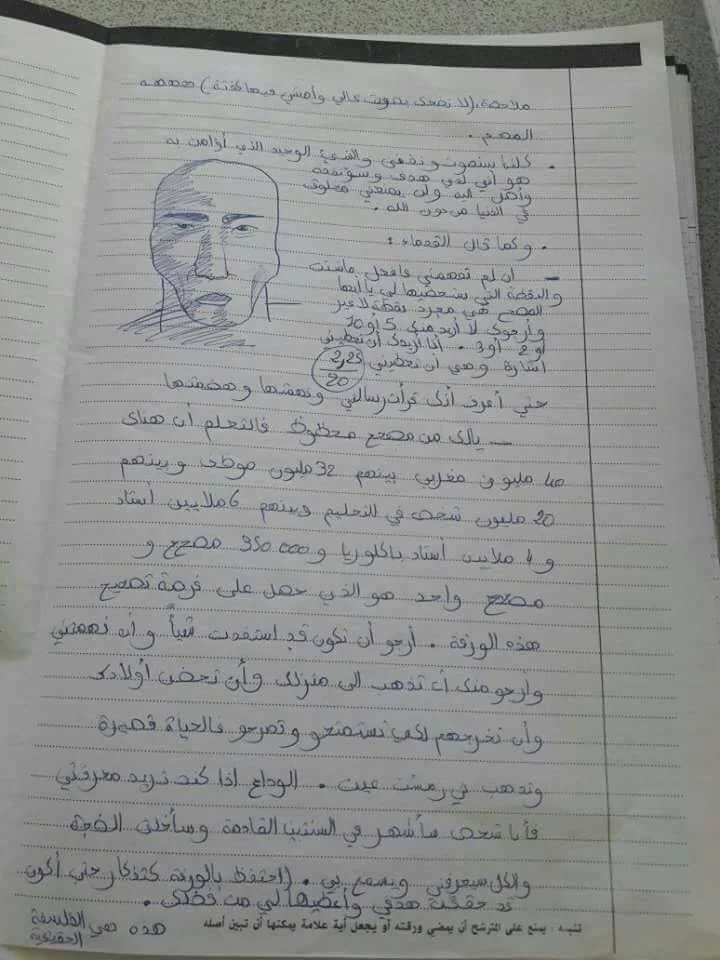 ملاحظة، (لا تضحك بصوت عالي وأمشي فيها كفتة) هههههه
المهم.
• كلنا سنموت ونفنى والشيئ الوحيد الذي أؤمن به
هو أني لدي هدف وسؤنفده
وأصل اليه ولن يمنعني مخلوق
في الدنيا من دون الله.
• وكما قال القدماء :
— ان لم تفهمني فافعل ماشئت
والنقطة التي ستعطيها لي ياأيها
المصحح هي مجرد نقطة لاغير
وأرجوك لا أريد منك 5 أو 10
أو 2 أو 3 . أنا أريدك أن تعطيني
اشارة وهي أن تعطيني 2,25/20
حتى أعرف أنك قرأت رسالتي وفهمتها وهضمتها
— يالك من مصحح محظوظ فالتعلم أن هناك
40 مليون مغربي بينهم 32 مليون موظف وبينهم
20 مليون شخص في التعليم وبينهم 6 ملايين أستاد
و 4 ملايين أستاد باكلوريا و 350.000 مصحح و
مصحح واحد هو الذي حصل على فرصة تصحيح
هذه الورقة . أرجو أن تكون قد استفدت شيأً وأن فهمتني
وأرجو منك أن تذهب الى منزلك وأن تحضن أولادك
وأن تخرجهم لكي تستمتعو وتمرحو فالحياة قصيرة
وتدهب في رمشت عين . الوداع اذا كنت تريد معرفتي
فأنا شخص سأشهر في السنتين القادمة وسأخلق الضجة
والكل سيعرفني ويسمع بي . (احتفظ بالورقة كتذكار حتى أكون
قد حققت هدفي وأعطيها لي من فضلك .
هذه هي الفلسفة
الحقيقية
تنبيه - يمنع على المترشح أن يمضي ورقته أو يجعل أية علامة يمكنها أن تبين أصله